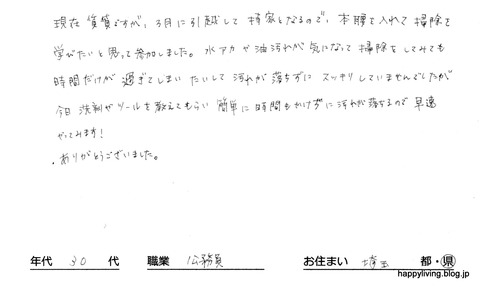 現在賃貸ですが、3月に引越して持家となるので、本腰を入れて掃除を
学びたいと思って参加しました。水アカや油汚れが気になって掃除をしてみても
時間だけが過ぎてしまいたいして汚れが落ちずにスッキリしていませんでしたが
今日洗剤やツールを教えてもらい簡単に時間もかけずに汚れが落ちるので早速
やってみます！
ありがとうございました。
年代 30 代 職業 公務員 お住まい 埼玉 都・県
happyliving.blog.jp